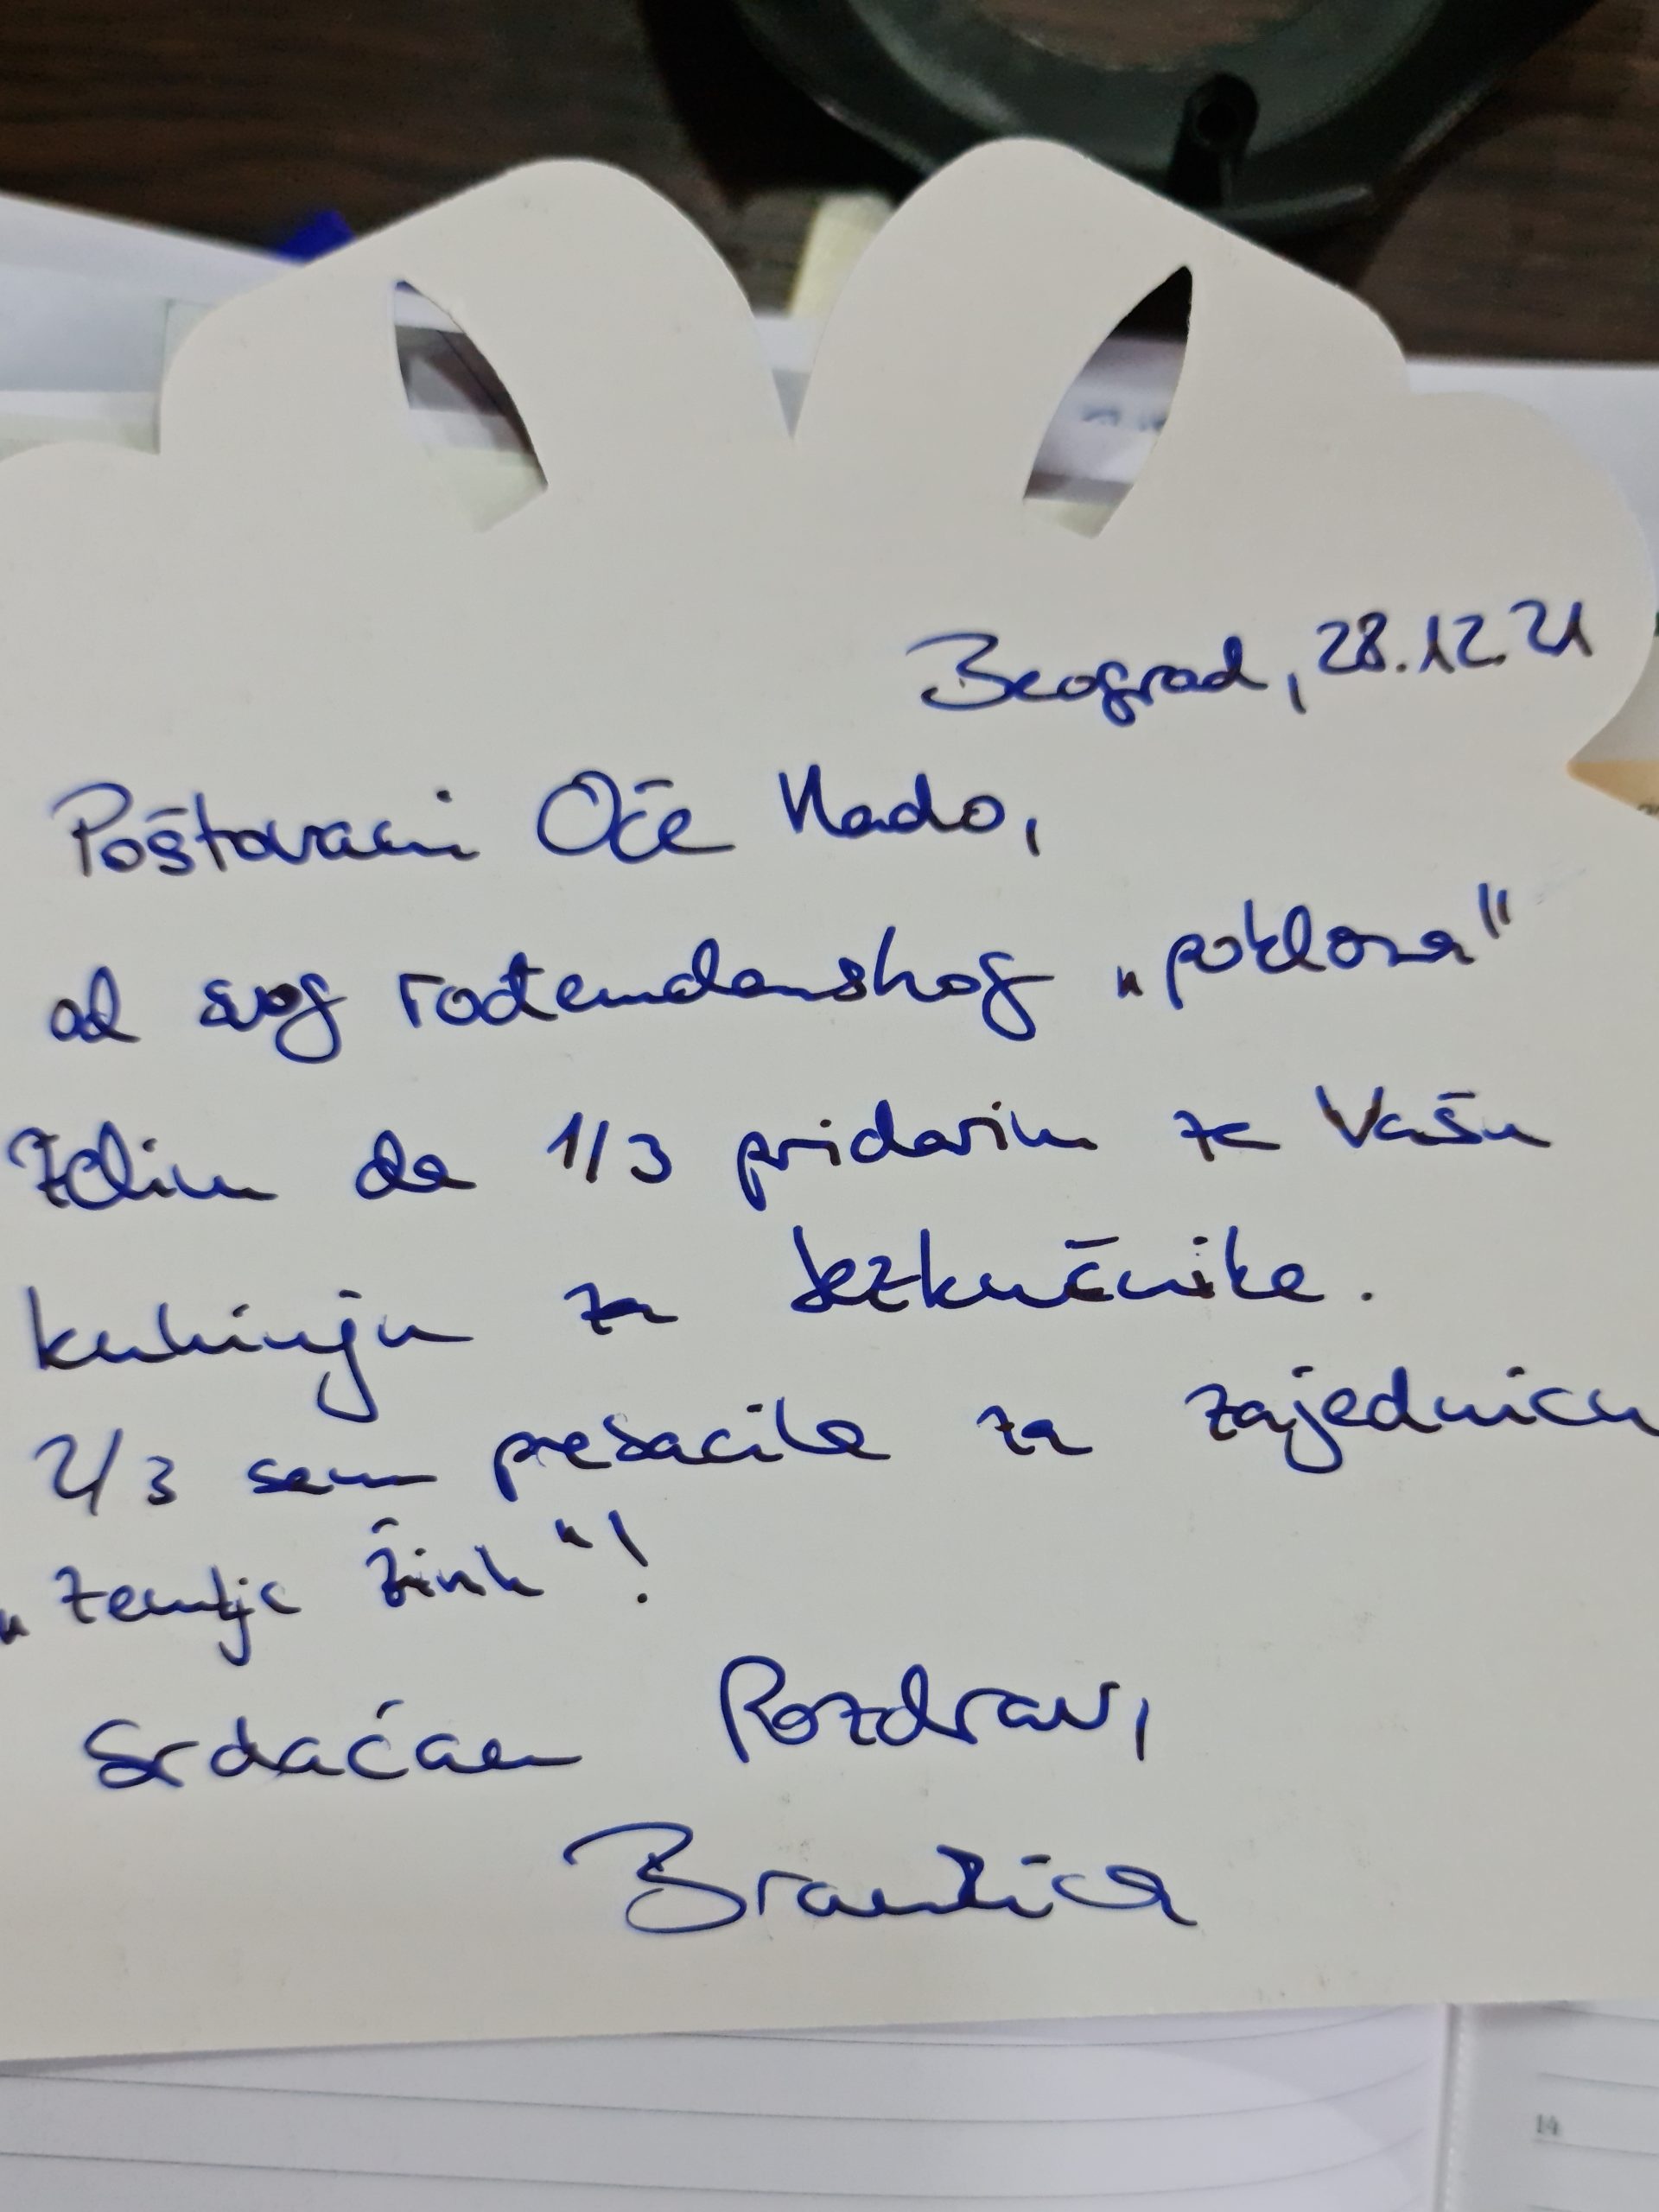 Beograd, 28.12.21
Poštovani Oče Vlado,
od svog rođendanskog „poklona"
želim da 1/3 pridarim za Vašu
kuhinju za bezkućnike.
2/3 sam prebacila za zajednicu
„Zemlje živih"!
Srdačan Pozdrav,
14